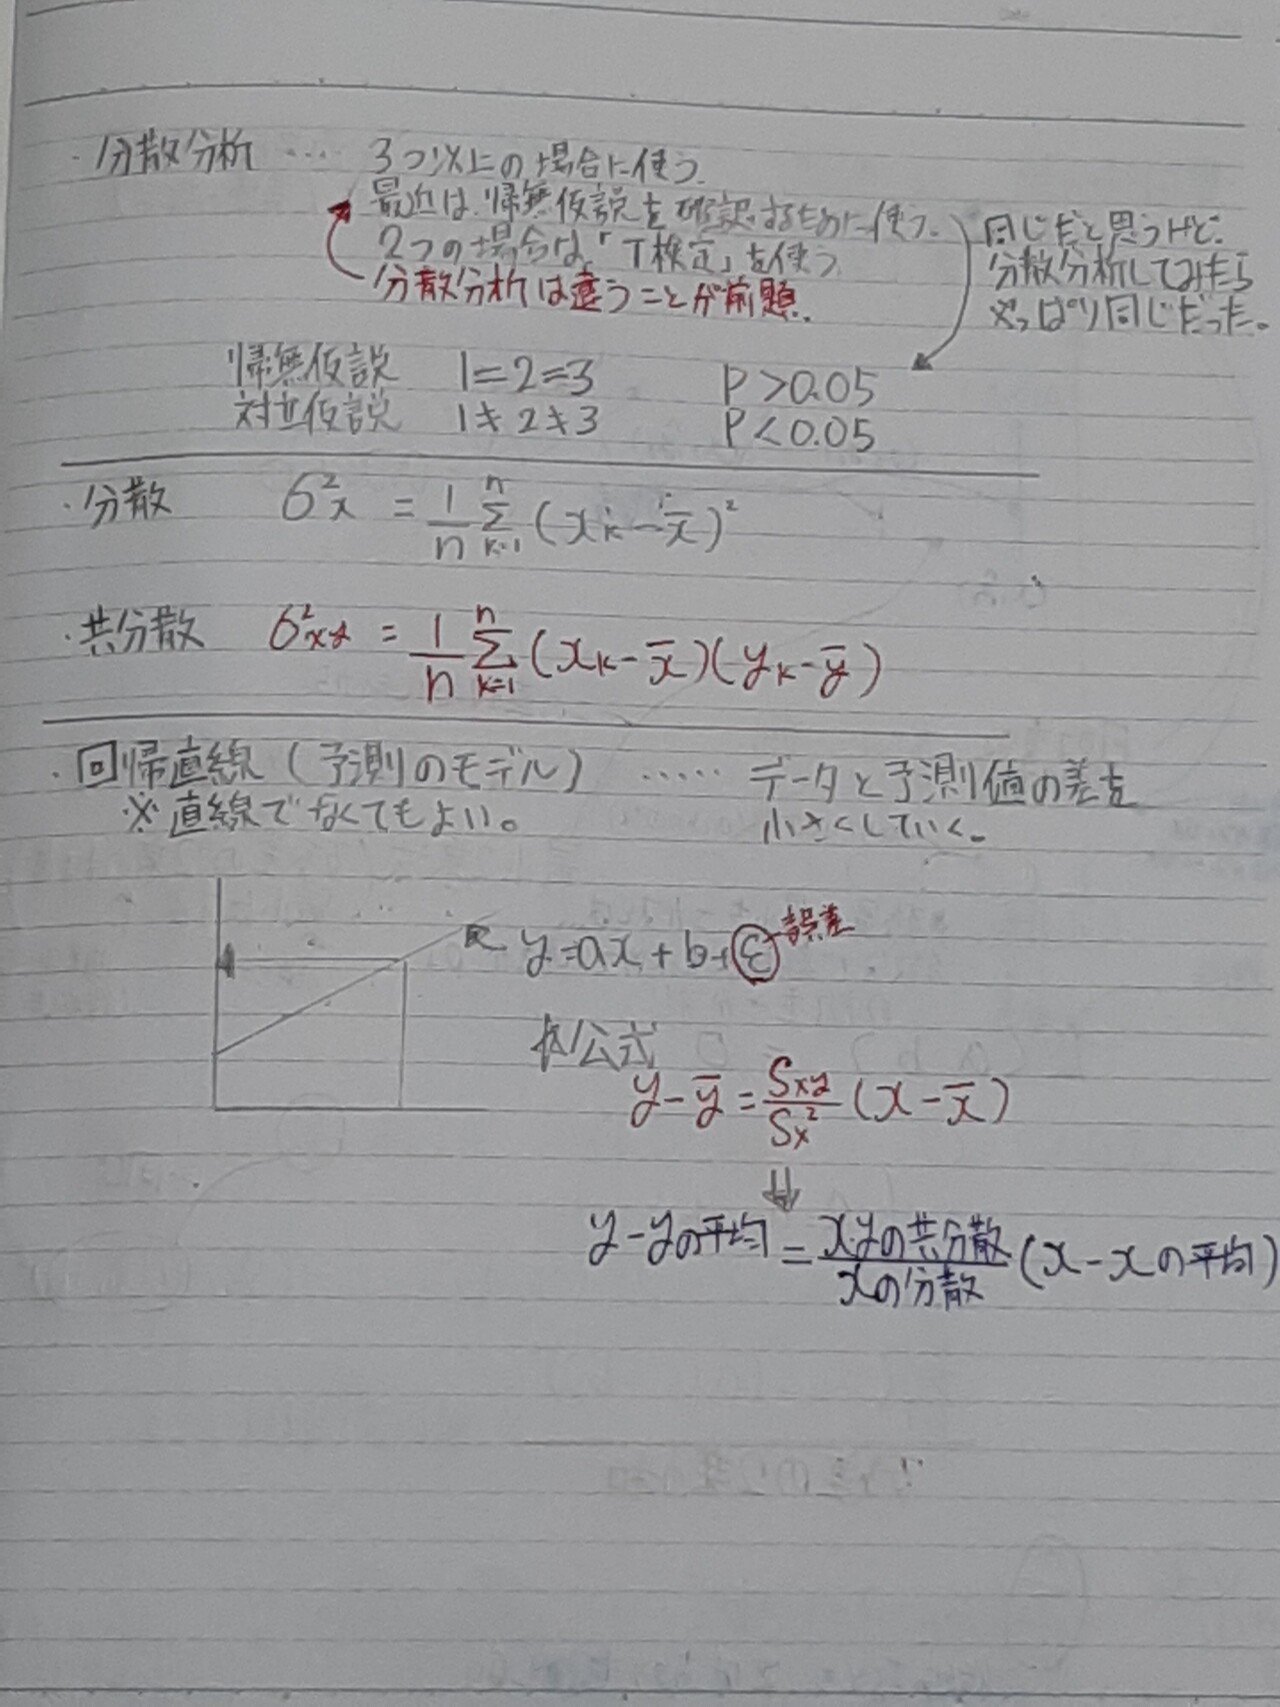 ・分散分析 ‥‥ 3つ以上の場合に使う。
最近は、帰無仮説を確認するために使う。
2つの場合は、「T検定」を使う
分散分析は違うことが前題。
同じだと思うけど、
分散分析してみたら
やっぱり同じだった。
帰無仮説 1=2=3 P>0.05
対立仮説 1≠2≠3 P<0.05
・分散 σ²x = 1/n Σ[k=1→n] (xk-x̄)²
・共分散 σ²xy = 1/n Σ[k=1→n] (xk-x̄)(yk-ȳ)
・回帰直線(予測のモデル) ‥‥‥ データと予測値の差を
※直線でなくてもよい。 小さくしていく。
y=ax+b+ε 誤差
公式
y-ȳ = Sxy/Sx² (x-x̄)
⇓
y-yの平均 = x.yの共分散/xの分散 (x-xの平均)